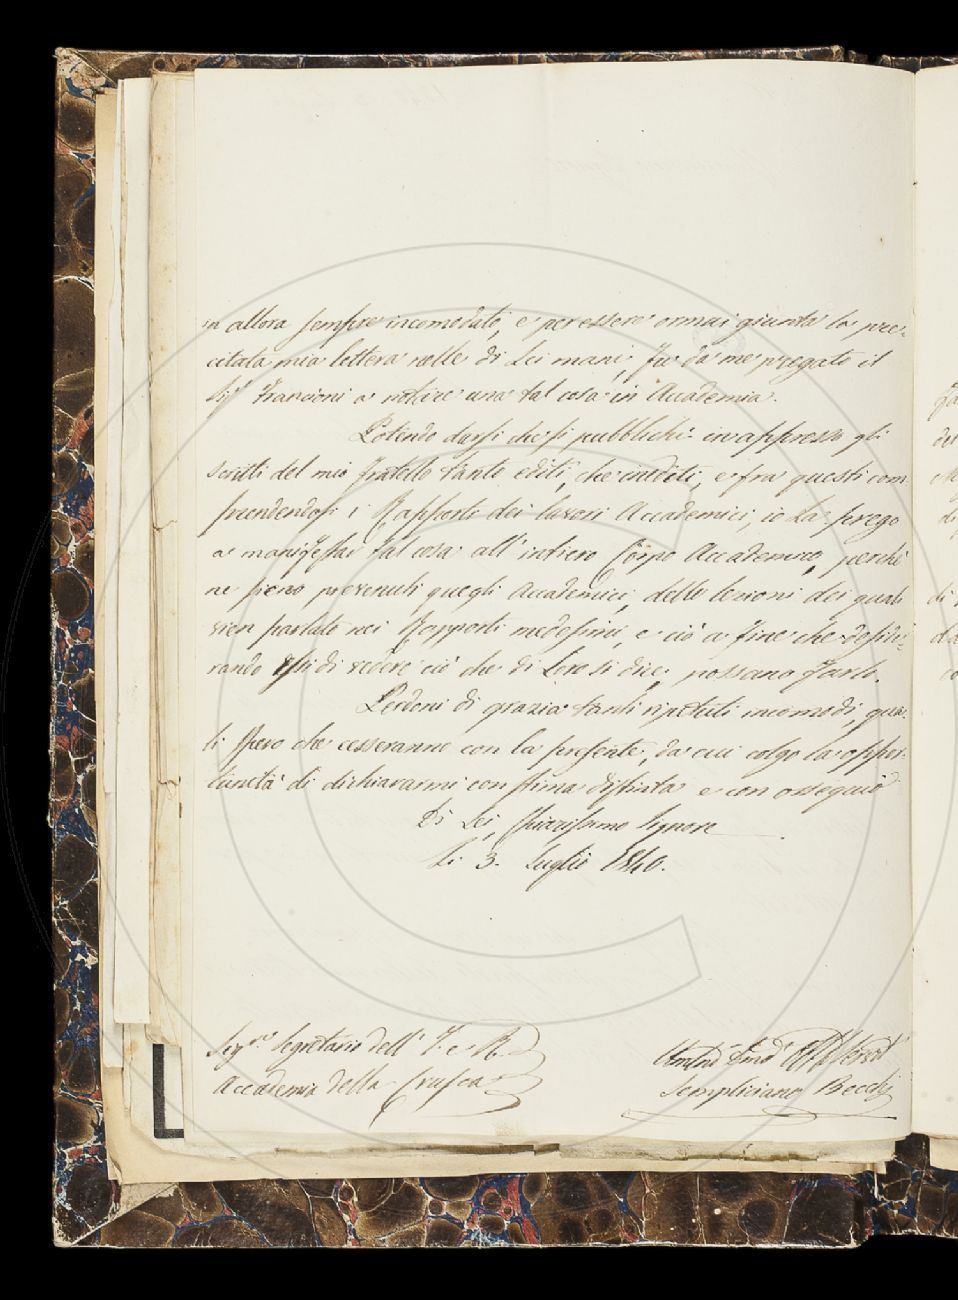 in allora sempre incomodato, e per essere ormai giunta la pre=
citata mia lettera nelle di Lei mani, fu da me pregato il
Sig.r Francioni a notificare una tal cosa in Accademia.
Potendo darsi che si pubblichi in appresso gli
scritti del mio fratello tanto editi, che inediti, e fra questi com
prendendosi i Rapporti dei lavori Accademici, io La prego
a manifestar tal cosa all' intiero Corpo Accademico, perchè
ne sieno prevenuti quegli Accademici, delle lezioni dei quali
vien parlato nei Rapporti medesimi, e ciò a fine che deside=
rando Essi di vedere ciò che di Loro si dice, possano farlo.
Perdoni di grazia tanti ripetuti incomodi, qua=
li spero che cesseranno con la presente, da cui colgo la oppor=
tunità di dichiararmi con stima distinta e con ossequio
Di Lei, Chiarissimo Signore
Li 3. Luglio 1840.
Sig.re Segretario dell' I. e R.
Accademia della Crusca
Sempliciano Becchi